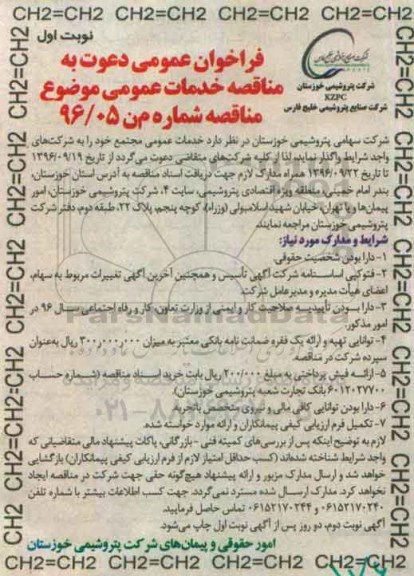 CH2=CH2 CH2=CH2 CH2=CH2 CH2=CH2 CH2=CH2
نوبت اول
فراخوان عمومی دعوت به
مناقصه خدمات عمومی موضوع
مناقصه شماره م‌ن ۹۶/۰۵
شرکت پتروشیمی خوزستان
KZPC
شرکت صنایع پتروشیمی خلیج فارس
شرکت سهامی پتروشیمی خوزستان در نظر دارد خدمات عمومی مجتمع خود را به شرکت‌های
واجد شرایط واگذار نماید، لذا از کلیه شرکت‌های متقاضی دعوت می‌گردد از تاریخ ۱۳۹۶/۰۹/۱۹
تا تاریخ ۱۳۹۶/۰۹/۲۲ همراه مدارک لازم جهت دریافت اسناد مناقصه به آدرس استان خوزستان،
بندر امام خمینی، منطقه ویژه اقتصادی پتروشیمی، سایت ۴، شرکت پتروشیمی خوزستان، امور
پیمان‌ها و یا تهران، خیابان شهید اسلامبولی (وزراء)، کوچه پنجم، پلاک ۲۲، طبقه دوم، دفتر شرکت
پتروشیمی خوزستان مراجعه نمایند.
شرایط و مدارک مورد نیاز:
۱- دارا بودن شخصیت حقوقی.
۲- فتوکپی اساسنامه شرکت، آگهی تأسیس و همچنین آخرین آگهی تغییرات مربوط به سهام،
اعضای هیأت مدیره و مدیرعامل شرکت.
۳- دارا بودن تأییدیه صلاحیت کار و ایمنی از وزارت تعاون، کار و رفاه اجتماعی سال ۹۶ در
امور مذکور.
۴- توانایی تهیه و ارائه یک فقره ضمانت نامه بانکی معتبر به میزان ۳۰۰٫۰۰۰٫۰۰۰ ریال به‌عنوان
سپرده شرکت در مناقصه.
۵- ارائه فیش پرداختی به مبلغ ۲۰۰/۰۰۰ ریال بابت خرید اسناد مناقصه (شماره حساب
۶۰۱۲۰۲۷۷۰۰ بانک تجارت شعبه پتروشیمی خوزستان).
۶- دارا بودن توانایی کافی مالی و نیروی متخصص باتجربه.
۷- تکمیل فرم ارزیابی کیفی پیمانکاران و ارائه موارد خواسته شده.
لازم به توضیح اینکه پس از بررسی‌های کمیته فنی - بازرگانی، پاکات پیشنهاد مالی متقاضیانی که
واجد شرایط شناخته شده‌اند (کسب حداقل امتیاز لازم از فرم ارزیابی کیفی پیمانکاران) بازگشایی
خواهد شد و ارسال مدارک مزبور و ارائه پیشنهاد هیچ‌گونه حقی جهت شرکت در مناقصه ایجاد
نخواهد کرد. مدارک ارسال شده مسترد نمی‌گردد. جهت کسب اطلاعات بیشتر با شماره تلفن
۰۶۱۵۲۱۷۰۲۴۰ و ۰۶۱۵۲۱۷۰۲۴۴ تماس حاصل فرمایید.
آگهی نوبت دوم، دو روز پس از آگهی نوبت اول چاپ می‌شود.
امور حقوقی و پیمان‌های شرکت پتروشیمی خوزستان
CH2=CH2 CH2=CH2 CH2=CH2 CH2=CH2 CH2=CH2